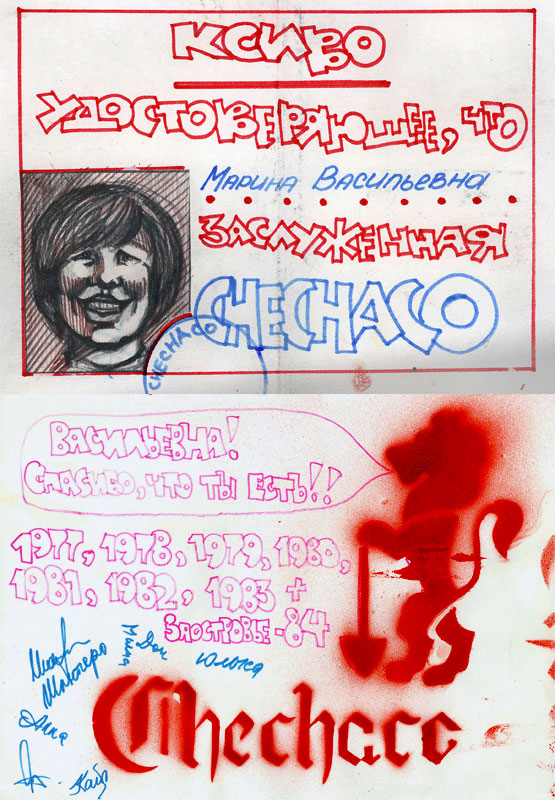 КСИВО
УДОСТОВЕРЯЮЩЕЕ, ЧТО
Марина Васильевна
ЗАСЛУЖЕННАЯ
CHECHACO
CHECHACO
ВАСИЛЬЕВНА!
СПАСИБО, ЧТО ТЫ ЕСТЬ!!
1977, 1978, 1979, 1980,
1981, 1982, 1983 +
ЗАОСТРОВЬЕ-84
Миша
Юлька
Анна
Chechaco